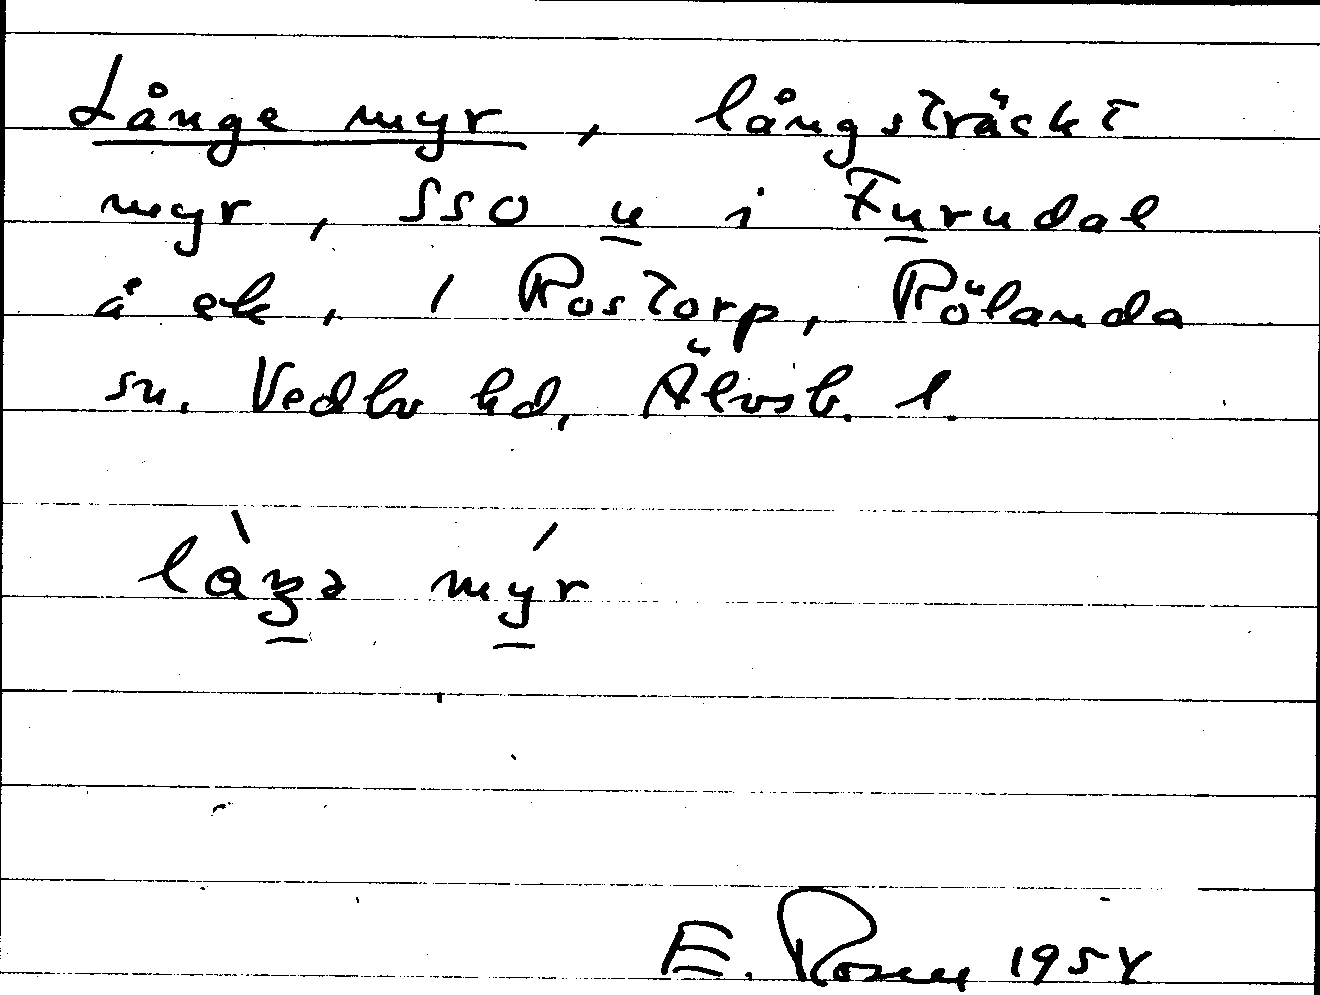 Långe myr, långsträckt
myr, SSO u i Furudal
å ek, 1 Rostorp, Rölanda
sn. Vedbo hd, Älvsb. l.
làŋə mýr
E. Rosen 1954